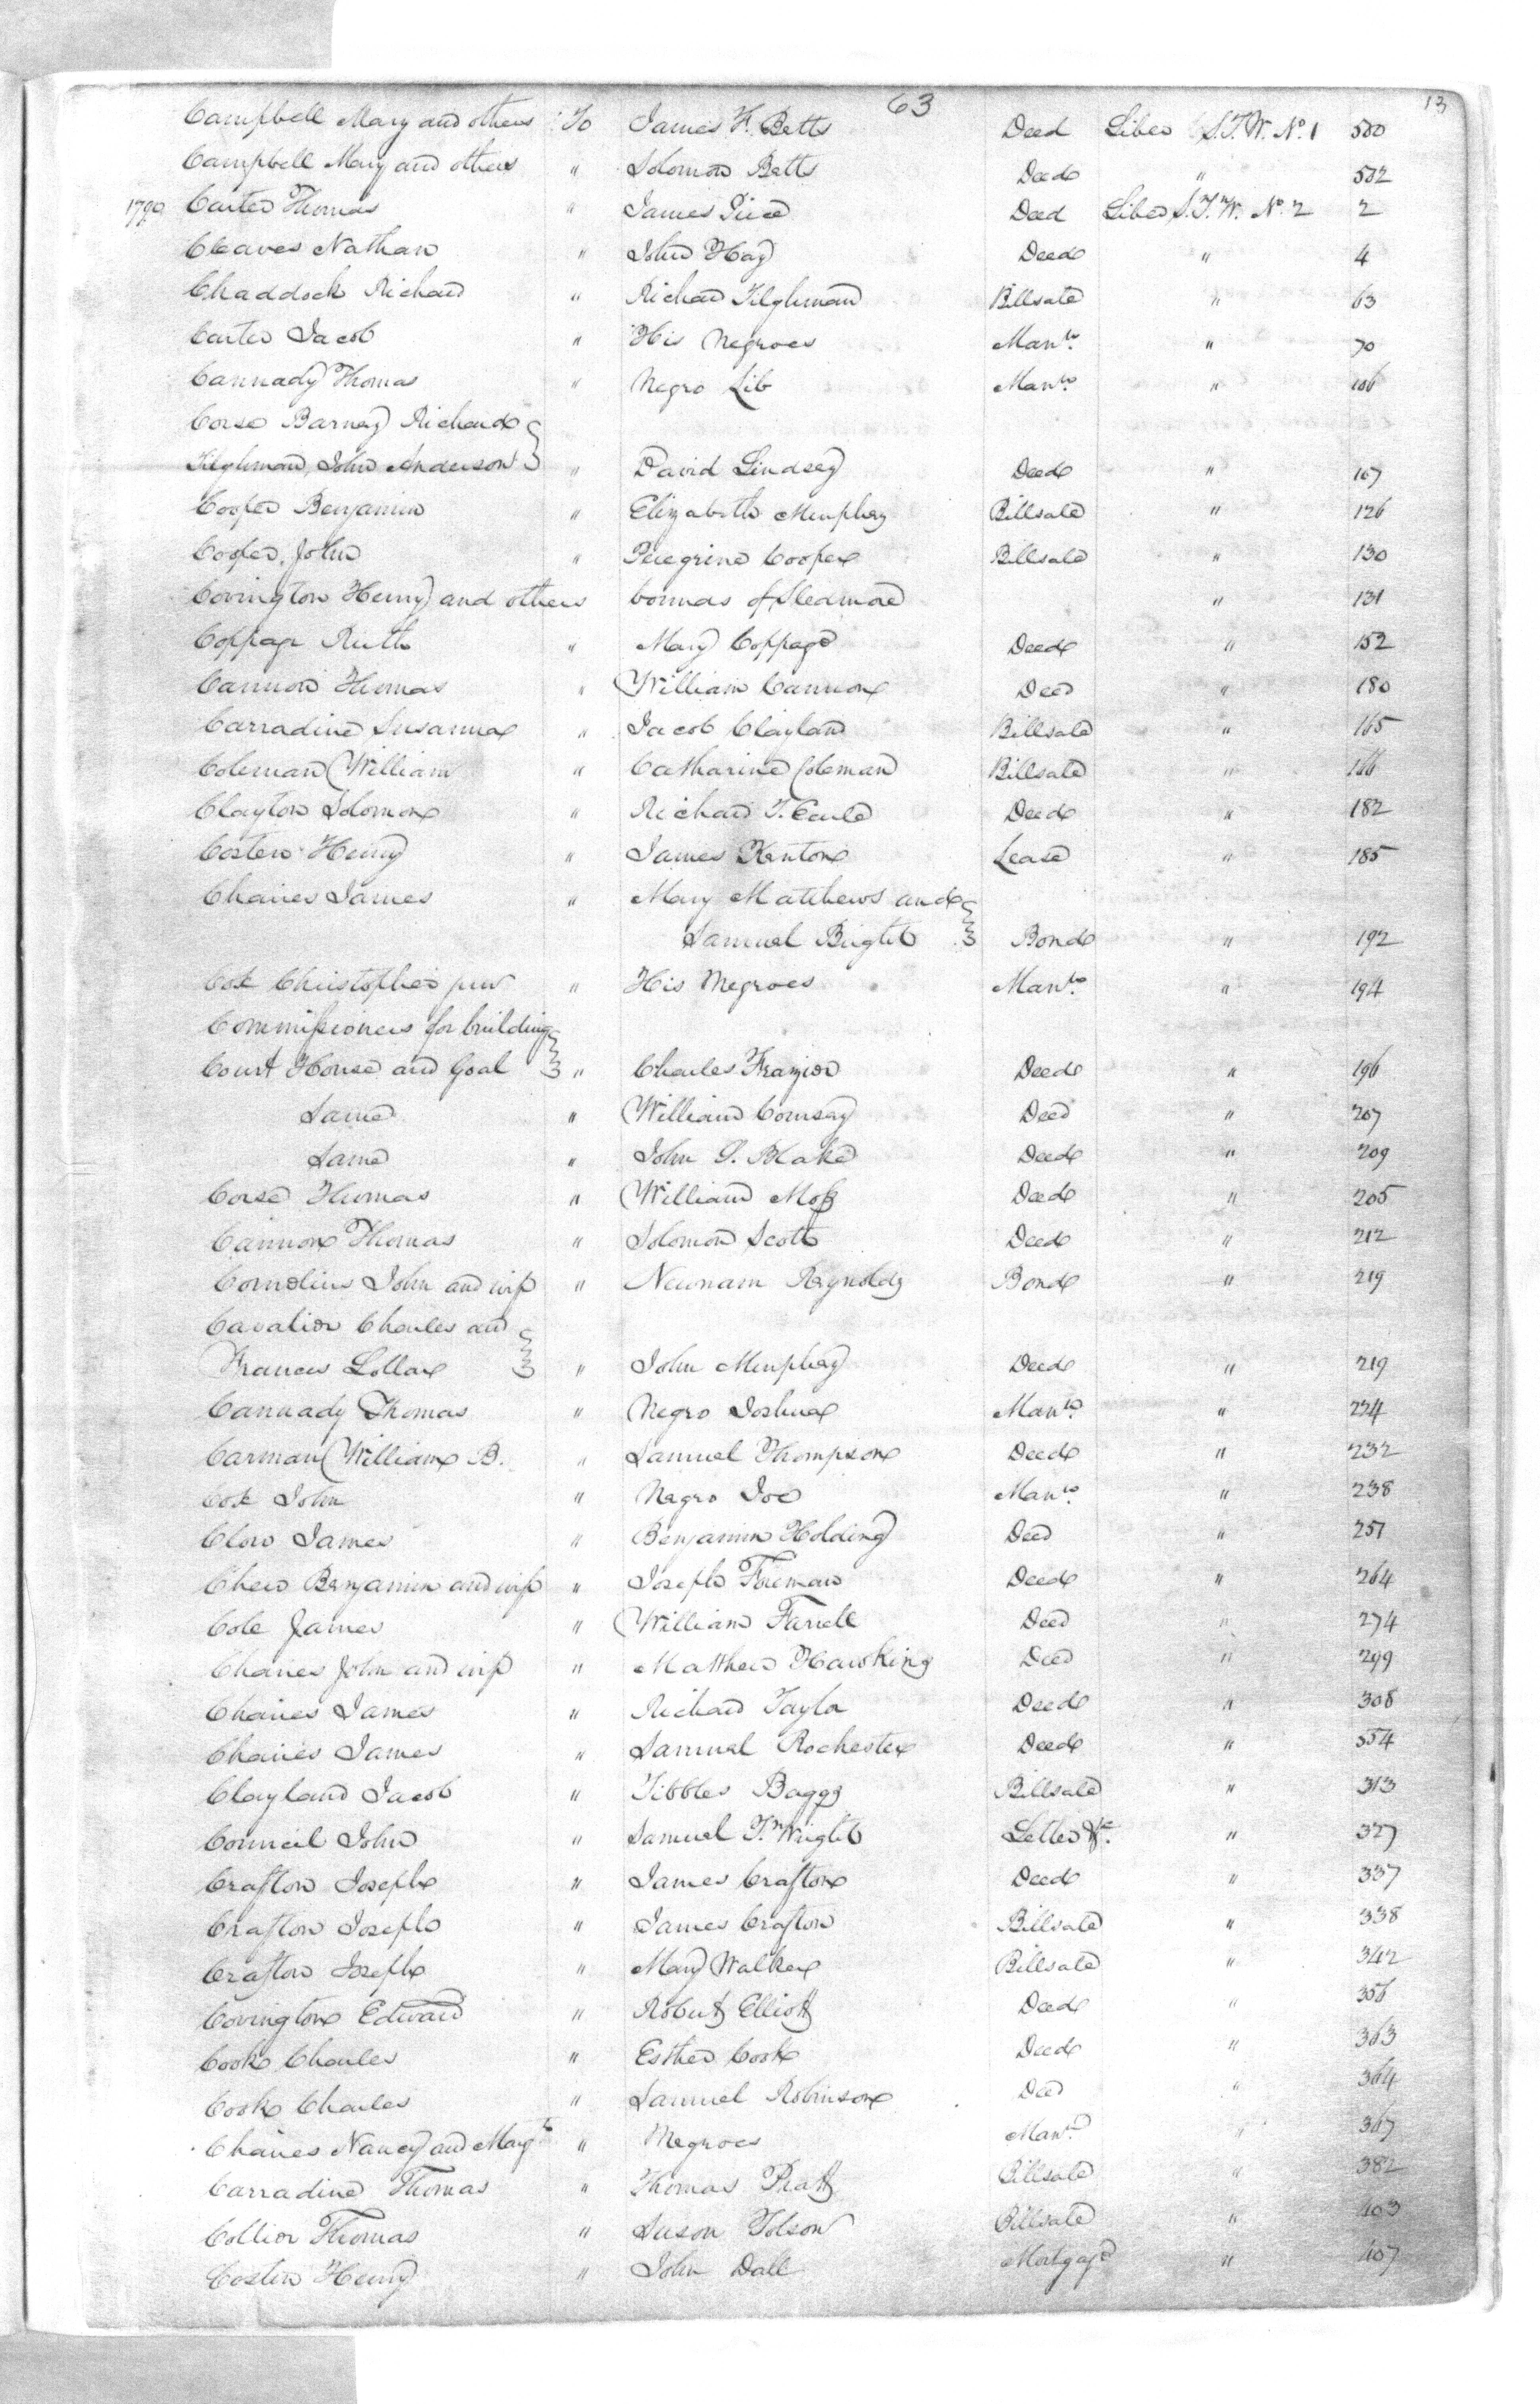 63 13
Campbell Mary and others To James F. Betts Deed Liber S.T.W. No. 1 500
Campbell Mary and others " Solomon Betts Deed " 502
1790 Carter Thomas " James Price Deed Liber S.T.W. No. 2 2
Cleaves Nathan " John Hay Deed " 4
Chaddock Richard " Richard Tilghman Billsale " 63
Carter Jacob " His Negroes Mann. " 70
Cannady Thomas " Negro Lib Mann. " 106
Corse Barney Richard
Tilghman, John Anderson " David Lindsey Deed " 107
Cooper Benjamin " Elizabeth Murphey Billsale " 126
Cooper John " Peregrine Cooper Billsale " 130
Covington Henry and others bounds of Sledmore " 131
Coppage Ruth " Mary Coppage Deed " 152
Cannon Thomas " William Cannon Deed " 180
Carradine Susanna " Jacob Clayland Billsale " 165
Coleman William " Catharine Coleman Billsale " 166
Clayton Solomon " Richard T. Earle Deed " 182
Costen Henry " James Kenton Lease " 185
Chaires James " Mary Matthews and
Samuel Bright Bond " 192
Cox Christopher junr " His Negroes Mann. " 194
Commissioners for building
Court House and Goal " Charles Frazier Deed " 196
Same " William Comsey Deed " 207
Same " John S. Blake Deed " 209
Corse Thomas " William Moss Deed " 205
Cannon Thomas " Solomon Scott Deed " 212
Cornelius John and wife " Newnam Reynolds Bond " 219
Cavalier Charles and
Frances Lollar " John Murphey Deed " 219
Cannady Thomas " Negro Joshua Mann. " 224
Carman William B. " Samuel Thompson Deed " 232
Cox John " Negro Joe Mann. " 238
Clow James " Benjamin Holding Deed " 251
Chew Benjamin and wife " Joseph Foreman Deed " 264
Cole James " William Farrell Deed " 274
Chaires John and wife " Matthew Hawkins Deed " 299
Chaires James " Richard Taylor Deed " 308
Chaires James " Samuel Rochester Deed " 554
Clayland Jacob " Tibbles Baggs Billsale " 313
Council John " Samuel T. Wright Letter &c. " 327
Crafton Joseph " James Crafton Deed " 337
Crafton Joseph " James Crafton Billsale " 338
Crafton Joseph " Mary Walker Billsale " 342
Covington Edward " Robert Elliott Deed " 356
Cook Charles " Esther Cook Deed " 363
Cook Charles " Samuel Robinson Deed " 364
Chaires Nancy and Margt " Negroes Mann. " 367
Carradine Thomas " Thomas Pratt Billsale " 382
Collier Thomas " Susan Tolson Billsale " 403
Costin Henry " John Dall Mortgage " 407